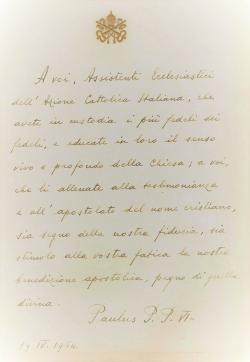 A voi, Assistenti Ecclesiastici
dell'Azione Cattolica Italiana, che
avete in custodia i più fedeli dei
fedeli, e educate in loro il senso
vivo e profondo della Chiesa; a voi,
che li allenate alla testimonianza
e all'apostolato del nome cristiano,
sia segno della nostra fiducia, sia
stimolo alla vostra fatica la nostra
benedizione apostolica, pegno di quella
divina.
Paulus P. P. VI.
1964.